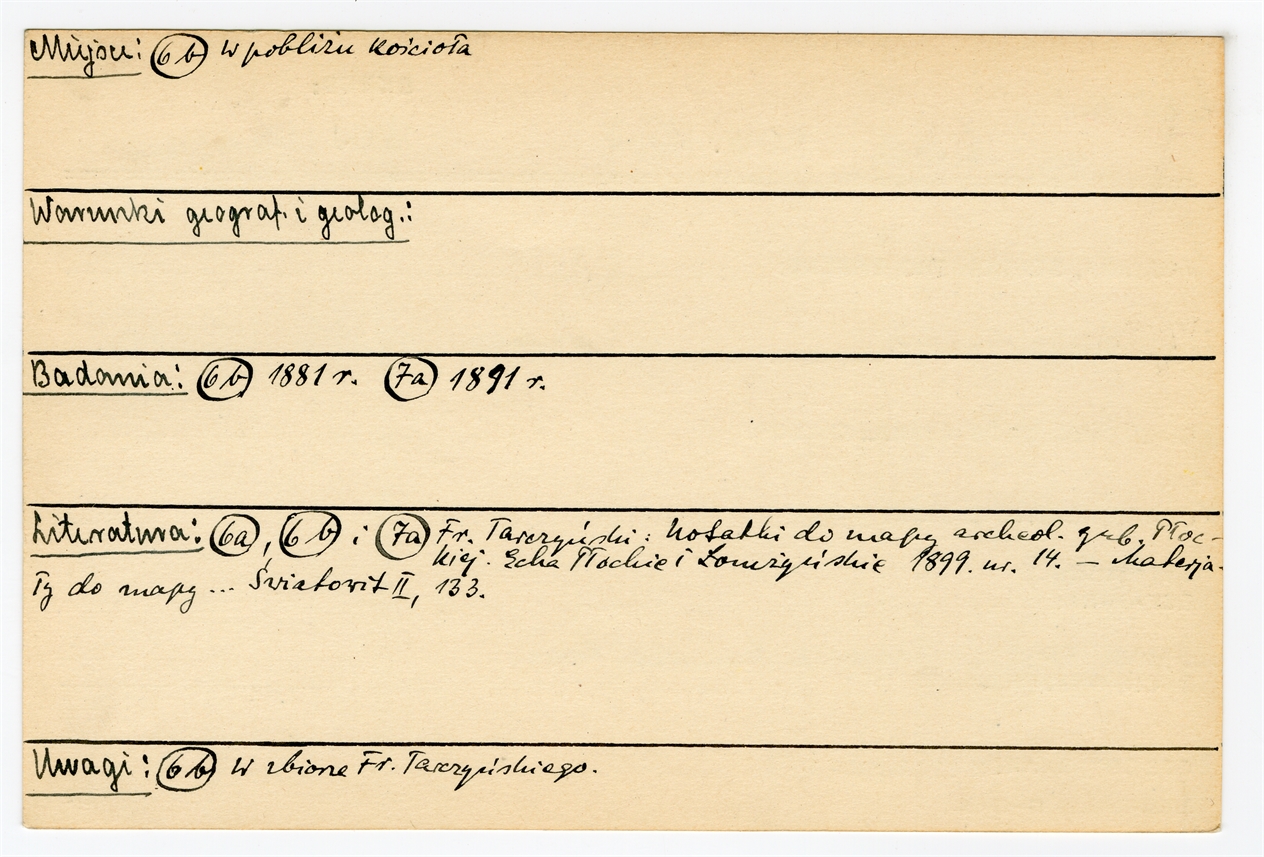 Miejsce: 6b w pobliżu kościoła
Warunki geograf. i geolog.:
Badania: 6b 1881 r. 7a 1891 r.
Literatura: 6a, 6b i 7a Fr. Tarczyński: Notatki do mapy archeol. gub. Płoc-
kiej. Echa Płockie i Łomżyńskie 1899. nr. 14. – Materja-
ły do mapy ... Światowit II, 133.
Uwagi: 6b w zbiorze Fr. Tarczyńskiego.